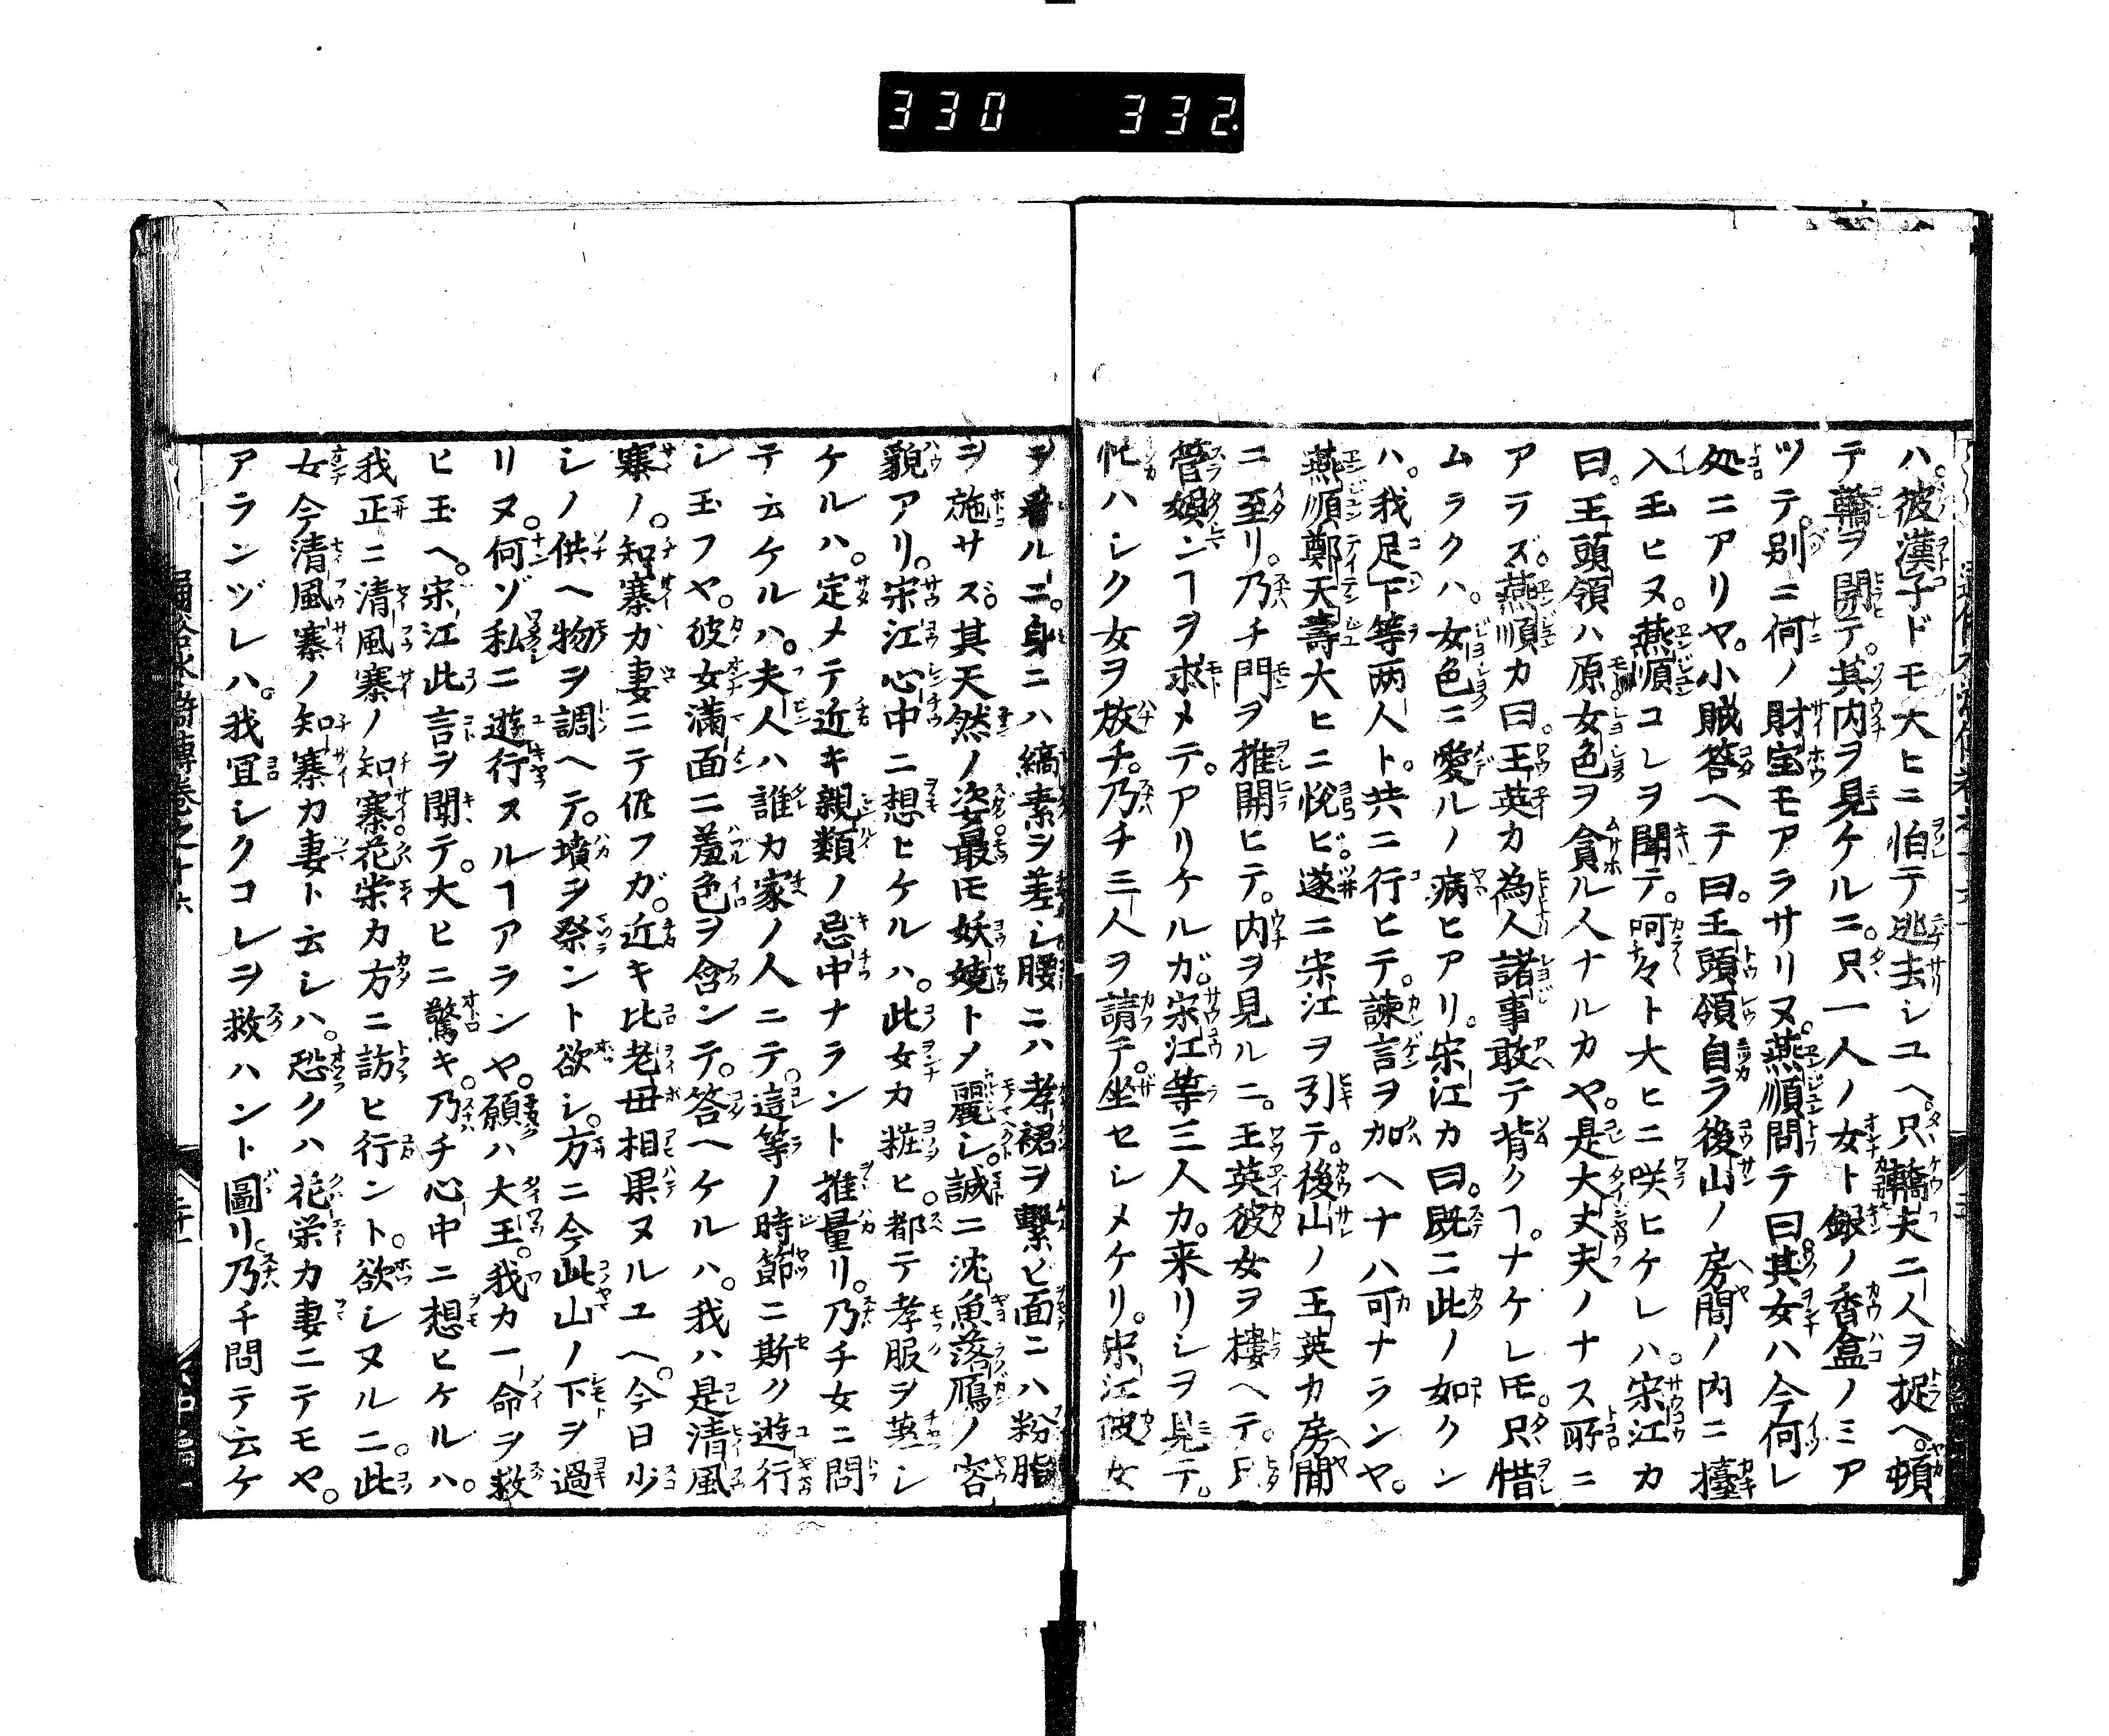 330 332.
ハ。彼漢子ドモ大ヒニ怕テ逃去シユヘ。只轎夫二人ヲ捉ヘ。頓
テ轎ヲ開テ。其内ヲ見ケルニ。只一人ノ女ト銀ノ香盒ノミア
ツテ。別ニ何ノ財宝モアラサリヌ。燕順問テ曰。其女ハ今何レ
処ニアリヤ。小賊答ヘテ曰。王頭領自ラ後山ノ房間ノ内ニ擡
入玉ヒヌ。燕順コレヲ聞テ。呵々ト大ヒニ咲ヒケレハ。宋江カ
曰。王頭領ハ原女色ヲ貪ル人ナルカヤ。是大丈夫ノナス所ニ
アラズ。燕順カ曰。王英カ為人諸事敢テ背クヿ。ナケレモ。只惜
ムラクハ。女色ニ愛ルノ病ヒアリ。宋江カ曰。既ニ此ノ如クン
ハ。我足下等両人ト。共ニ行ヒテ。諌言ヲ加ヘナハ可ナランヤ。
燕順鄭天壽大ヒニ悦ビ。遂ニ宋江ヲ引テ。後山ノ王英カ房間
ニ至リ。乃チ門ヲ推開ヒテ。内ヲ見ルニ。王英彼女ヲ摟ヘテ。
ンヿヲ求メテ。アリケルガ。宋江等三人カ。来リシヲ見テ。
忙ハシク女ヲ放チ。乃チ三人ヲ請テ。坐セシメケリ。宋江彼女
ヲ看ルニ。身ニハ縞素ヲ差シ腰ニハ孝裙ヲ繫ヒ面ニハ粉脂
ヲ施サス。其天然ノ姿最モ妖嬈トメ麗シ。誠ニ沈魚落鴈ノ容
貌アリ。宋江心中ニ想ヒケルハ。此女カ粧ヒ。都テ孝服ヲ著シ
ケルハ。定メテ近キ親類ノ忌中ナラント推量リ。乃チ女ニ問
テ云ケルハ。夫人ハ誰カ家ノ人ニテ。這等ノ時節ニ斯ク遊行
シ玉フヤ。彼女滿面ニ羞色ヲ含ンテ。答ヘケルハ。我ハ是清風
寨ノ。知寨カ妻ニテ侭フガ。近キ比老母相果ヌルユヘ。今日少
シノ供ヘ物ヲ調ヘテ。墳ヲ祭ント欲シ。方ニ今此山ノ下ヲ過
リヌ。何ゾ私ニ遊行スルヿアランヤ。願ハ大王。我カ一命ヲ救
ヒ玉ヘ。宋江此言ヲ聞テ。大ヒニ驚キ。乃チ心中ニ想ヒケルハ。
我正ニ清風寨ノ知寨花栄カ方ニ訪ヒ行ント。欲シヌルニ。此
女今清風寨ノ知寨カ妻ト云シハ。恐クハ花栄カ妻ニテモヤ。
アランヅレハ。我宜シクコレヲ救ハント圖リ。乃チ問テ云ケ